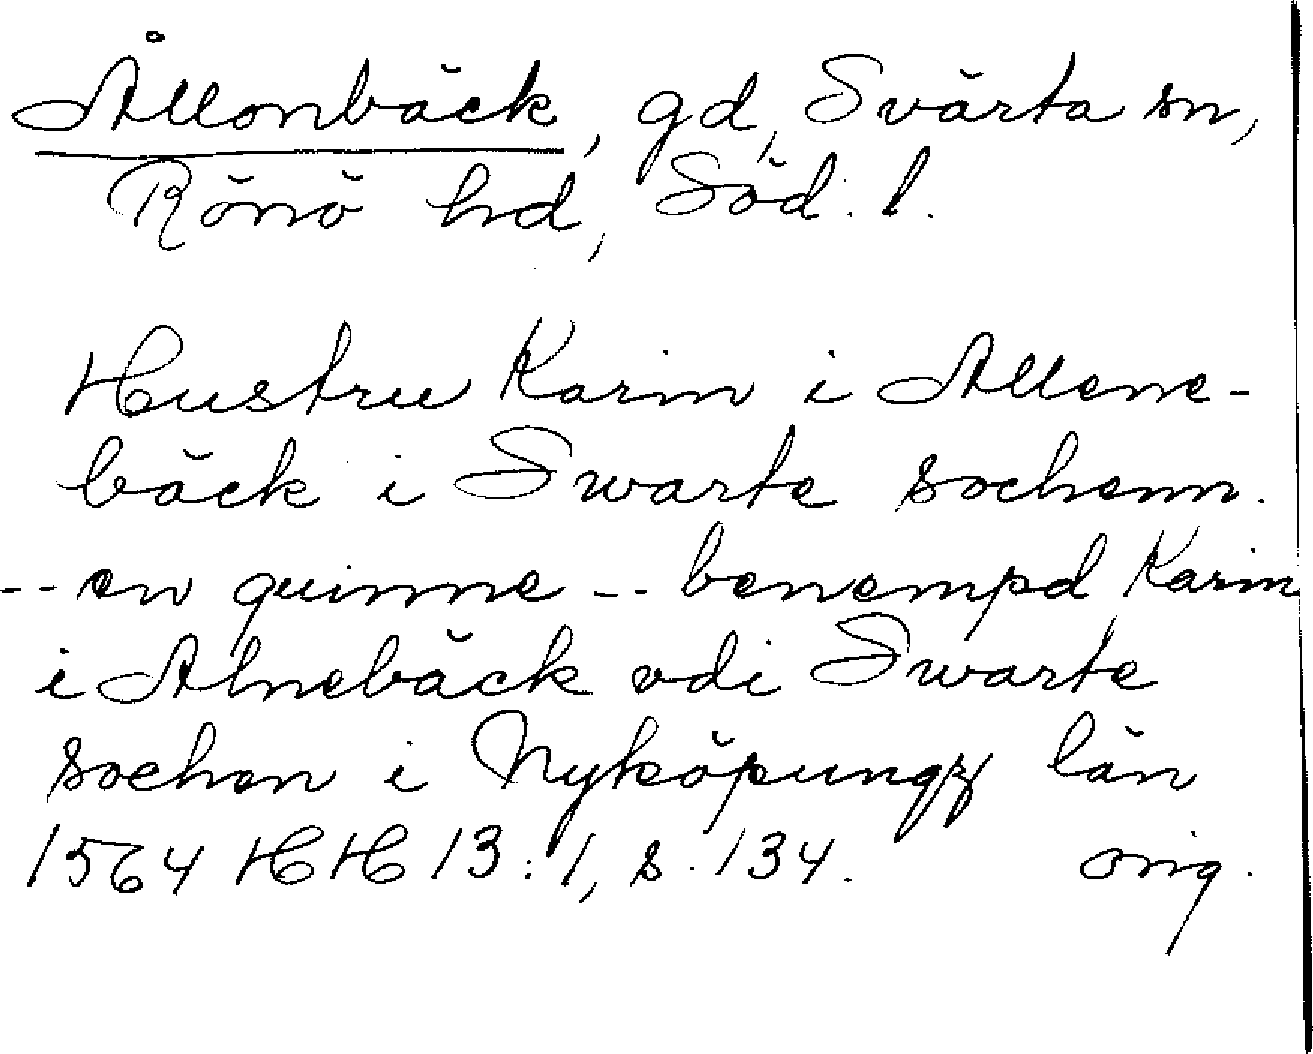 Ållonbäck, gd, Svärta sn,
Rönö hd, Söd. l.
Hustru Karin i Allene-
bäck i Swarte sochenn.
-- en quinne -- benempd Karin
i Alnebäck vdi Swarte
sochen i Nyköpungz län
1564 HH 13:1, s. 134. orig.